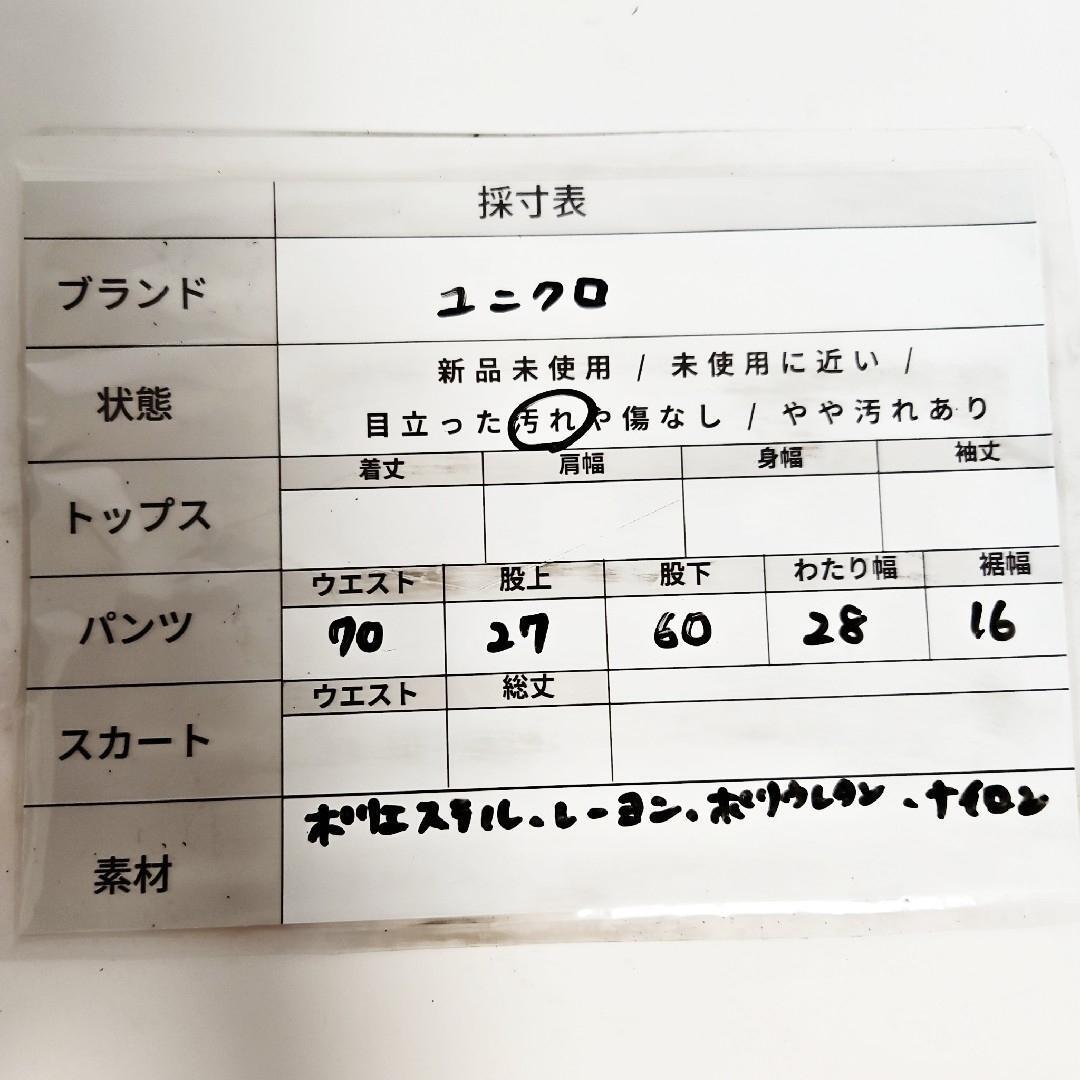 採寸表
ブランド
ユニクロ
状態
新品未使用 / 未使用に近い /
目立った汚れや傷なし / やや汚れあり
トップス
着丈 肩幅 身幅 袖丈
パンツ
ウエスト 股上 股下 わたり幅 裾幅
70 27 60 28 16
スカート
ウエスト 総丈
素材
ポリエステル、レーヨン、ポリウレタン、ナイロン